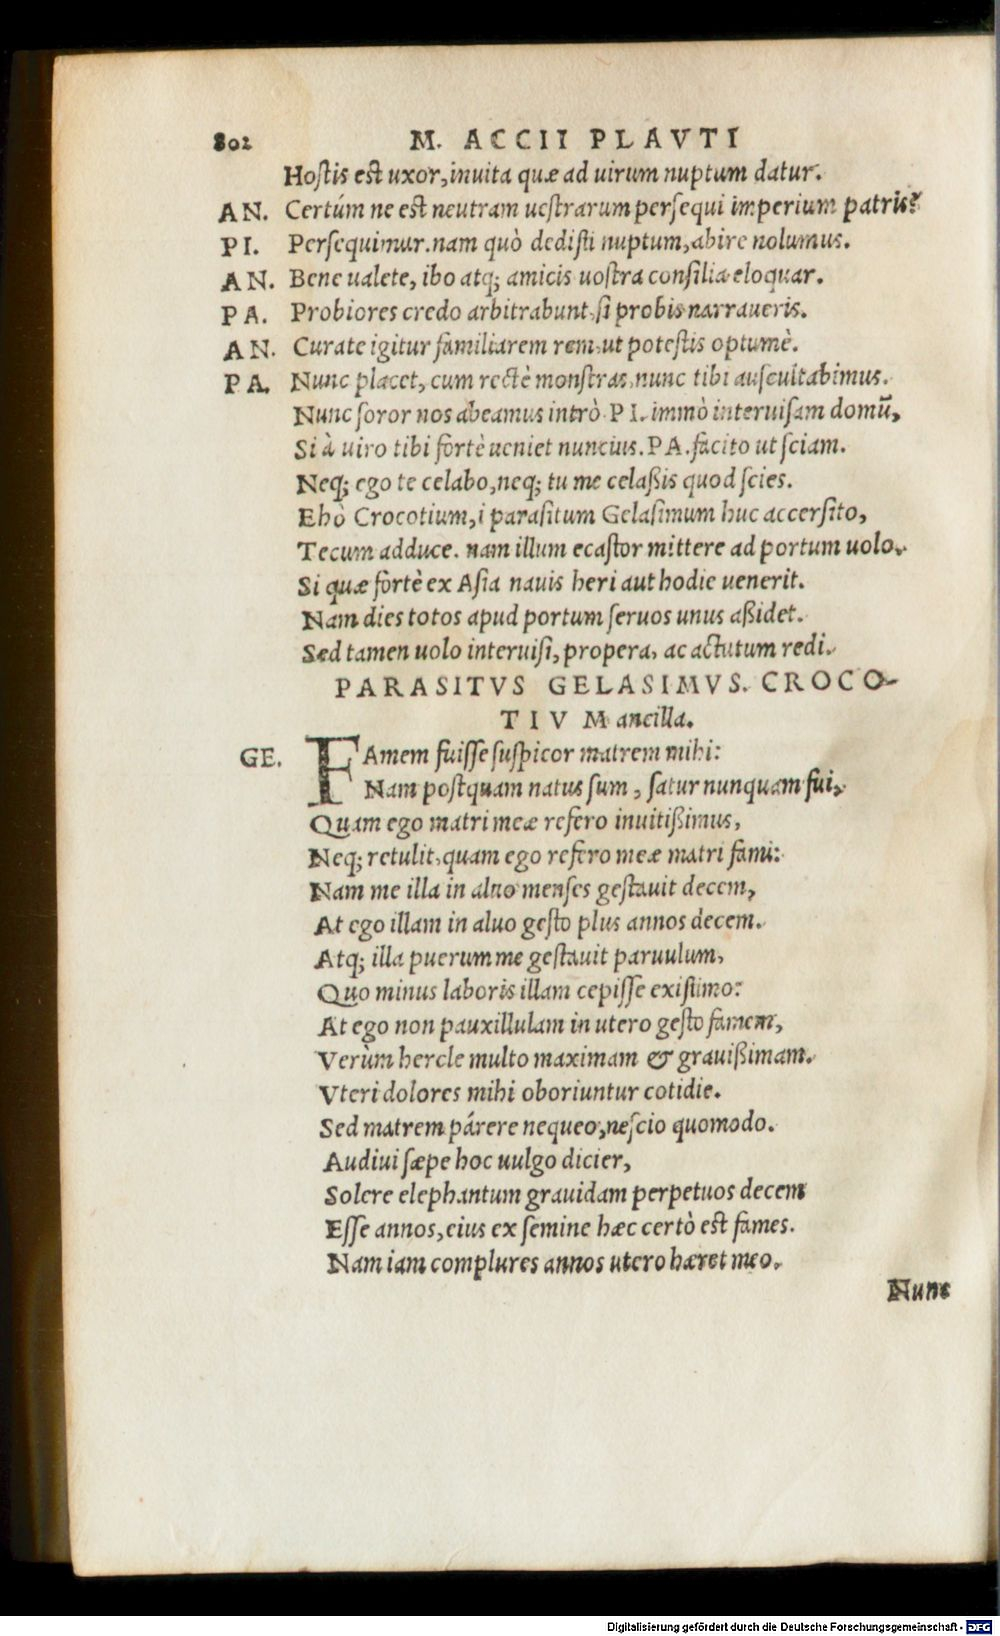 802 M. ACCII PLAVTI
Hostis est uxor, inuita quæ ad uirum nuptum datur.
AN. Certúm ne est neutram uestrarum persequi imperium patris?
PI. Persequimur. nam quò dedisti nuptum, abire nolumus.
AN. Bene ualete, ibo atq; amicis uostra consilia eloquar.
PA. Probiores credo arbitrabunt, si probis narraueris.
AN. Curate igitur familiarem rem, ut potestis optumè.
PA. Nunc placet, cum rectè monstras, nunc tibi auscultabimus.
Nunc soror nos abeamus intrò. PI. immò interuisam domū,
Si à uiro tibi fortè ueniet nuncius. PA. facito ut sciam.
Neq; ego te celabo, neq; tu me celaßis quod scies.
Ehò Crocotium, i parasitum Gelasimum huc accersito,
Tecum adduce. nam illum ecastor mittere ad portum uolo.
Si quæ fortè ex Asia nauis heri aut hodie uenerit.
Nam dies totos apud portum seruos unus aßidet.
Sed tamen uolo interuisi, propera, ac actutum redi.
PARASITVS GELASIMVS. CROCO-
TIV Mancilla.
GE. FAmem fuisse suspicor matrem mihi:
Nam postquam natus sum, satur nunquam fui,
Quam ego matri meæ refero inuitißimus,
Neq; retulit, quam ego refero meæ matri fami:
Nam me illa in aluo menses gestauit decem,
At ego illam in aluo gesto plus annos decem.
Atq; illa puerum me gestauit paruulum,
Quo minus laboris illam cepisse existimo:
At ego non pauxillulam in utero gesto famem,
Verùm hercle multo maximam & grauißimam.
Vteri dolores mihi oboriuntur cotidie.
Sed matrem párere nequeo, nescio quomodo.
Audiui sæpe hoc uulgo dicier,
Solere elephantum grauidam perpetuos decem
Esse annos, eius ex semine hæc certò est fames.
Nam iam complures annos utero hæret meo.
Nunc
Digitalisierung gefördert durch die Deutsche Forschungsgemeinschaft - DFG